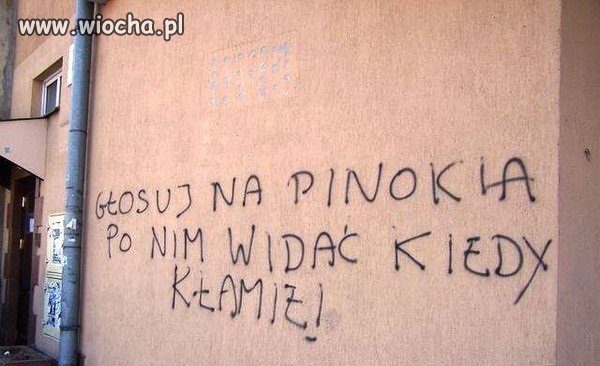 www.wiocha.pl
GŁOSUJ NA PINOKIA
PO NIM WIDAĆ KIEDY
KŁAMIE!